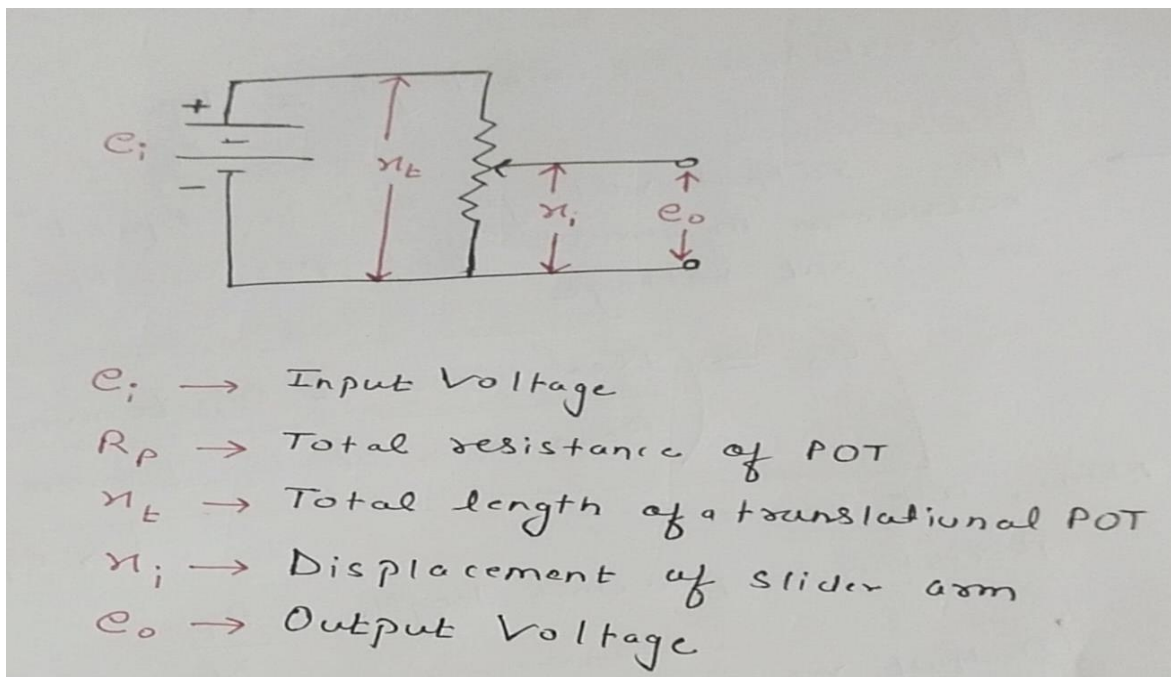 +
eᵢ
−
xₜ
xᵢ
eₒ
eᵢ → Input Voltage
Rₚ → Total resistance of POT
xₜ → Total length of a translational POT
xᵢ → Displacement of slider arm
eₒ → Output Voltage